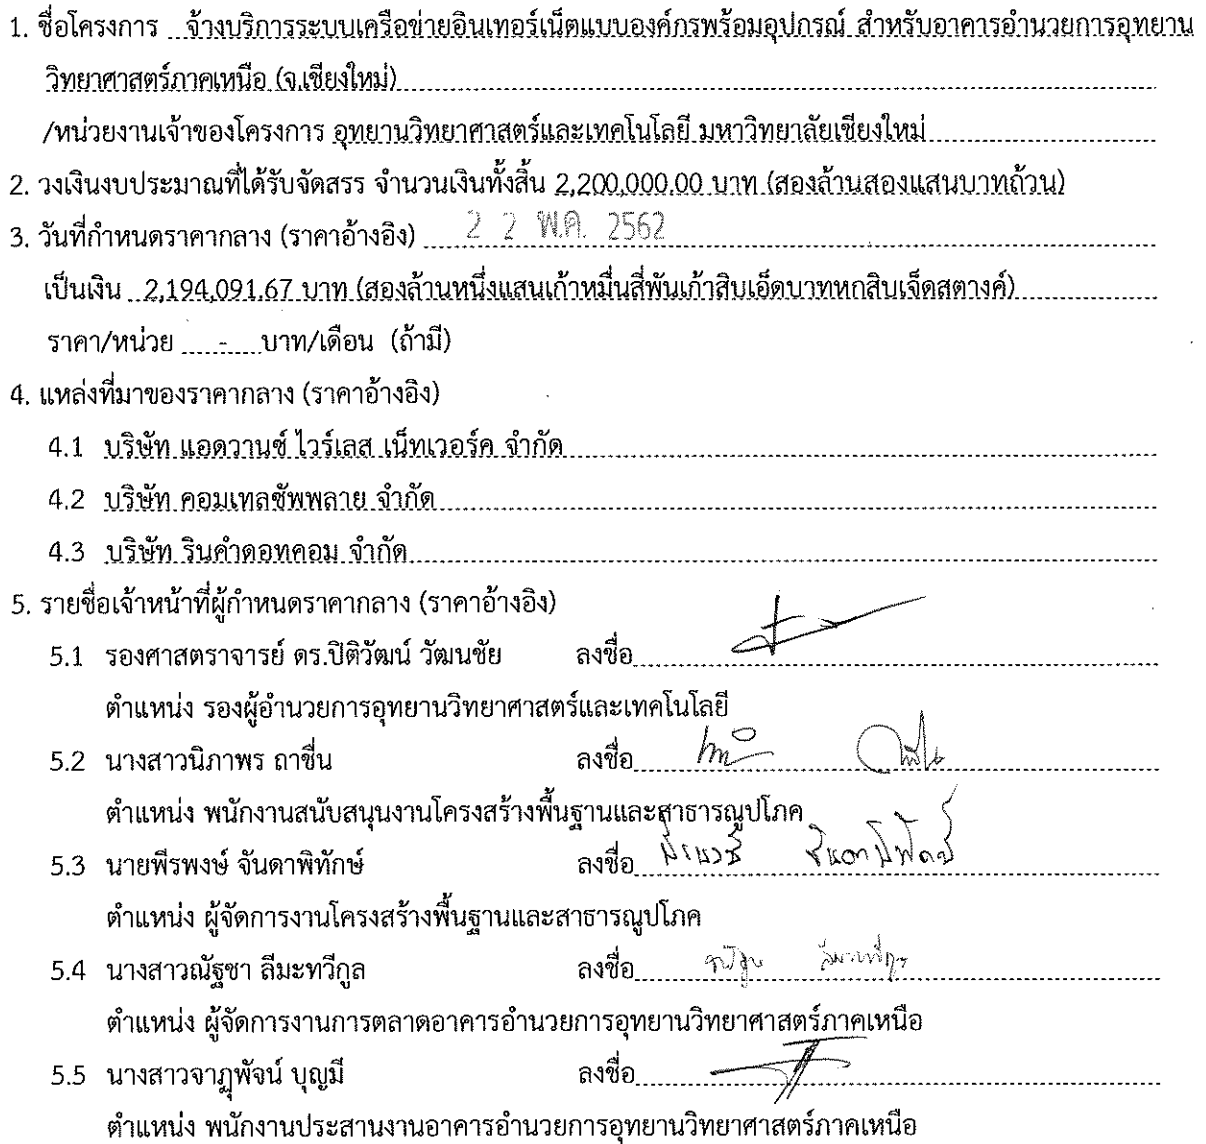 1. ชื่อโครงการ จ้างบริการระบบเครือข่ายอินเทอร์เน็ตแบบองค์กรพร้อมอุปกรณ์ สำหรับอาคารอำนวยการอุทยาน
วิทยาศาสตร์ภาคเหนือ (จ.เชียงใหม่)
/หน่วยงานเจ้าของโครงการ อุทยานวิทยาศาสตร์และเทคโนโลยี มหาวิทยาลัยเชียงใหม่
2. วงเงินงบประมาณที่ได้รับจัดสรร จำนวนเงินทั้งสิ้น 2,200,000.00 บาท (สองล้านสองแสนบาทถ้วน)
3. วันที่กำหนดราคากลาง (ราคาอ้างอิง) 2 2 พ.ค. 2562
เป็นเงิน 2,194,091.67 บาท (สองล้านหนึ่งแสนเก้าหมื่นสี่พันเก้าสิบเอ็ดบาทหกสิบเจ็ดสตางค์)
ราคา/หน่วย - บาท/เดือน (ถ้ามี)
4. แหล่งที่มาของราคากลาง (ราคาอ้างอิง)
4.1 บริษัท แอดวานซ์ ไวร์เลส เน็ทเวอร์ค จำกัด
4.2 บริษัท คอมเทลซัพพลาย จำกัด
4.3 บริษัท รินคำดอทคอม จำกัด
5. รายชื่อเจ้าหน้าที่ผู้กำหนดราคากลาง (ราคาอ้างอิง)
5.1 รองศาสตราจารย์ ดร.ปิติวัฒน์ วัฒนชัย ลงชื่อ
ตำแหน่ง รองผู้อำนวยการอุทยานวิทยาศาสตร์และเทคโนโลยี
5.2 นางสาวนิภาพร ถาชื่น ลงชื่อ
ตำแหน่ง พนักงานสนับสนุนงานโครงสร้างพื้นฐานและสาธารณูปโภค
5.3 นายพีรพงษ์ จันดาพิทักษ์ ลงชื่อ
ตำแหน่ง ผู้จัดการงานโครงสร้างพื้นฐานและสาธารณูปโภค
5.4 นางสาวณัฐชา ลีมะทวีกูล ลงชื่อ
ตำแหน่ง ผู้จัดการงานการตลาดอาคารอำนวยการอุทยานวิทยาศาสตร์ภาคเหนือ
5.5 นางสาวจาฏุพัจน์ บุญมี ลงชื่อ
ตำแหน่ง พนักงานประสานงานอาคารอำนวยการอุทยานวิทยาศาสตร์ภาคเหนือ